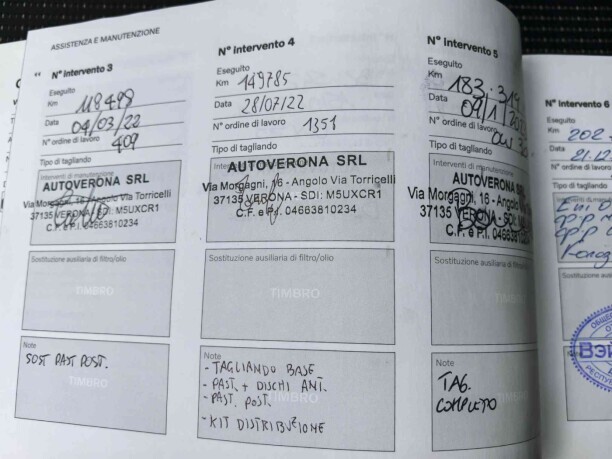 ASSISTENZA E MANUTENZIONE
N° intervento 3
Eseguito
Km 118499
Data 04/03/22
N° ordine di lavoro 409
Tipo di tagliando
Interventi di manutenzione
AUTOVERONA SRL
Via Morgagni, 16 - Angolo Via Torricelli
37135 VERONA - SDI: M5UXCR1
C.F. e P.I. 04663810234
Sostituzione ausiliaria di filtro/olio
TIMBRO
Note
SOST PAST POST.
TIMBRO
N° intervento 4
Eseguito
Km 149785
Data 28/07/22
N° ordine di lavoro 1351
Tipo di tagliando
AUTOVERONA SRL
Via Morgagni, 16 - Angolo Via Torricelli
37135 VERONA - SDI: M5UXCR1
C.F. e P.I. 04663810234
Sostituzione ausiliaria di filtro/olio
TIMBRO
Note
- TAGLIANDO BASE
- PAST. + DISCHI ANT.
- PAST. POST.
- KIT DISTRIBUZIONE
TIMBRO
N° intervento 5
Eseguito
Km 183.314
Data
N° ordine di lavoro
Tipo di tagliando
Interventi di manutenzione
AUTOVERONA
Via Morgagni, 16 - Angolo
37135 VERONA - SDI
C.F. e P.I. 04663810234
Sostituzione ausiliaria di
Note
TAG.
COMPLETO
N° intervento 6
Eseguito
Km 202
Data 21.12
N° ordine di lavoro
Tipo di tagliando
Sostituzione
Note